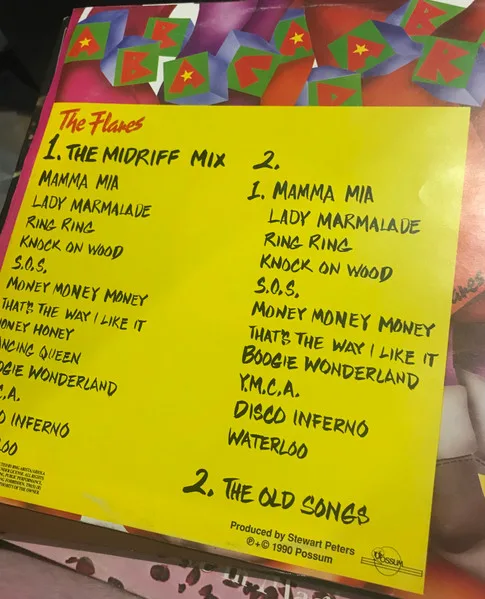 ABBACADABR
The Flares
1. THE MIDRIFF MIX
MAMMA MIA
LADY MARMALADE
RING RING
KNOCK ON WOOD
S.O.S.
MONEY MONEY MONEY
THAT'S THE WAY I LIKE IT
ONEY HONEY
NCING QUEEN
OGIE WONDERLAND
C.A.
O INFERNO
LOO
2.
1. MAMMA MIA
LADY MARMALADE
RING RING
KNOCK ON WOOD
S.O.S.
MONEY MONEY MONEY
THAT'S THE WAY I LIKE IT
BOOGIE WONDERLAND
Y.M.C.A.
DISCO INFERNO
WATERLOO
2. THE OLD SONGS
Produced by Stewart Peters
℗+© 1990 Possum
POSSUM